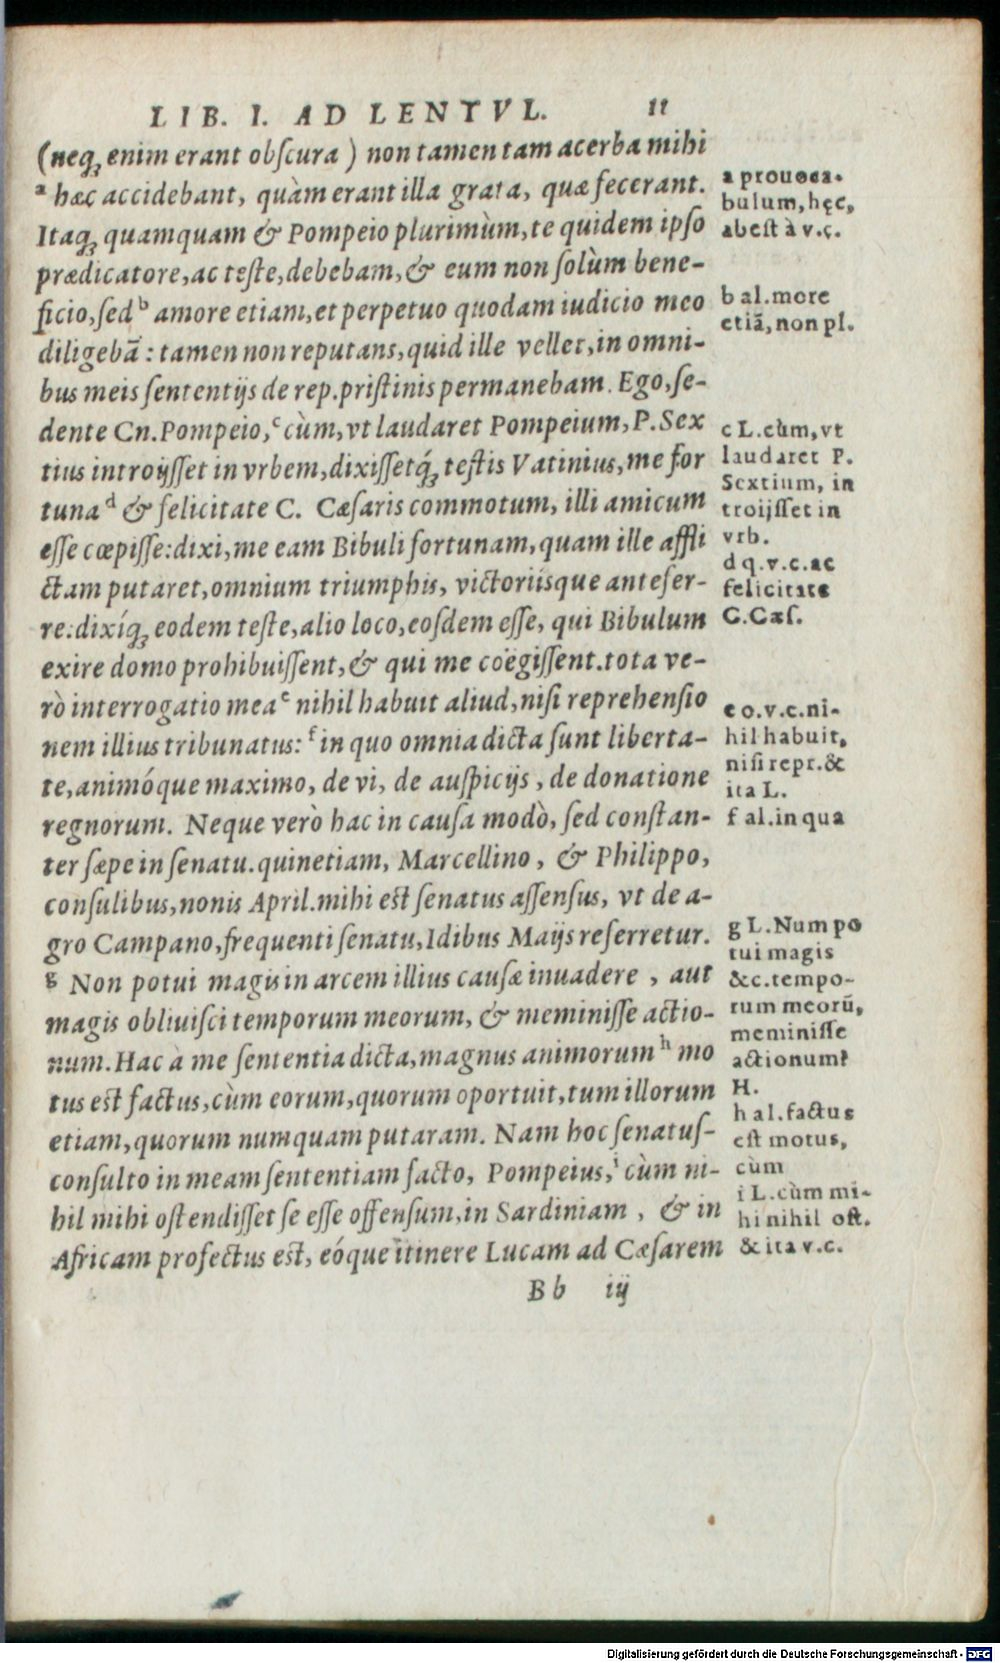 LIB. I. AD LENTVL. 11
(neq; enim erant obſcura) non tamen tam acerba mihi
ᵃ hæc accidebant, quàm erant illa grata, quæ fecerant.
Itaq; quamquam & Pompeio plurimùm, te quidem ipſo
prædicatore, ac teſte, debebam, & eum non ſolùm bene-
ficio, ſed ᵇ amore etiam, et perpetuo quodam iudicio meo
diligebā: tamen non reputans, quid ille vellet, in omni-
bus meis ſententijs de rep. priſtinis permanebam. Ego, ſe-
dente Cn. Pompeio, ᶜ cùm, vt laudaret Pompeium, P. Sex
tius introijſſet in vrbem, dixiſſetq́; teſtis Vatinius, me for
tuna ᵈ & felicitate C. Cæſaris commotum, illi amicum
eſſe cœpiſſe: dixi, me eam Bibuli fortunam, quam ille affli
ctam putaret, omnium triumphis, victoriisque anteſer-
re: dixíq; eodem teſte, alio loco, eoſdem eſſe, qui Bibulum
exire domo prohibuiſſent, & qui me coëgiſſent. tota ve-
rò interrogatio mea ᵉ nihil habuit aliud, niſi reprehenſio
nem illius tribunatus: ᶠ in quo omnia dicta ſunt liberta-
te, animóque maximo, de vi, de auſpicijs, de donatione
regnorum. Neque verò hac in cauſa modò, ſed conſtan-
ter ſæpe in ſenatu. quinetiam, Marcellino, & Philippo,
conſulibus, nonis April. mihi eſt ſenatus aſſenſus, vt de a-
gro Campano, frequenti ſenatu, Idibus Maijs referretur.
ᵍ Non potui magis in arcem illius cauſæ inuadere, aut
magis obliuiſci temporum meorum, & meminiſſe actio-
num. Hac à me ſententia dicta, magnus animorum ʰ mo
tus eſt factus, cùm eorum, quorum oportuit, tum illorum
etiam, quorum numquam putaram. Nam hoc ſenatuſ-
conſulto in meam ſententiam facto, Pompeius, ⁱ cùm ni-
hil mihi oſtendiſſet ſe eſſe offenſum, in Sardiniam, & in
Africam profectus eſt, eóque itinere Lucam ad Cæſarem
Bb iij
a prouoca-
bulum, hęc,
abeſt à v.c.
b al. more
etiā, non pl.
c L. cùm, vt
laudaret P.
Sextium, in
troijſſet in
vrb.
d q.v.c. ac
felicitate
C. Cæſ.
e o.v.c. ni-
hil habuit,
niſi repr. &
ita L.
f al. in qua
g L. Num po
tui magis
&c. tempo-
rum meorū,
meminiſſe
actionum?
H.
h al. factus
eſt motus,
cùm
i L. cùm mi-
hi nihil oſt.
& ita v.c.
Digitalisierung gefördert durch die Deutsche Forschungsgemeinschaft - DFG